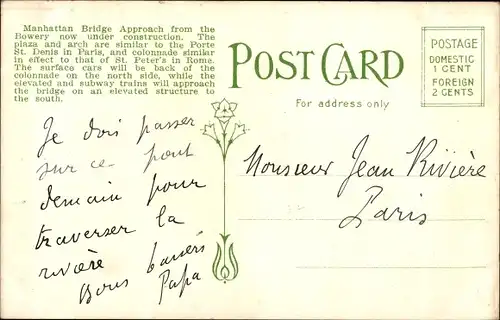 Manhattan Bridge Approach from the
Bowery now under construction. The
plaza and arch are similar to the Porte
St. Denis in Paris, and colonnade similar
in effect to that of St. Peter's in Rome.
The surface cars will be back of the
colonnade on the north side, while the
elevated and subway trains will approach
the bridge on an elevated structure to
the south.
POST CARD
For address only
POSTAGE
DOMESTIC
1 CENT
FOREIGN
2 CENTS
Je dois passer
sur ce pont
demain pour
traverser la
rivière
Bons baisers
Papa
Monsieur Jean Rivière
Paris